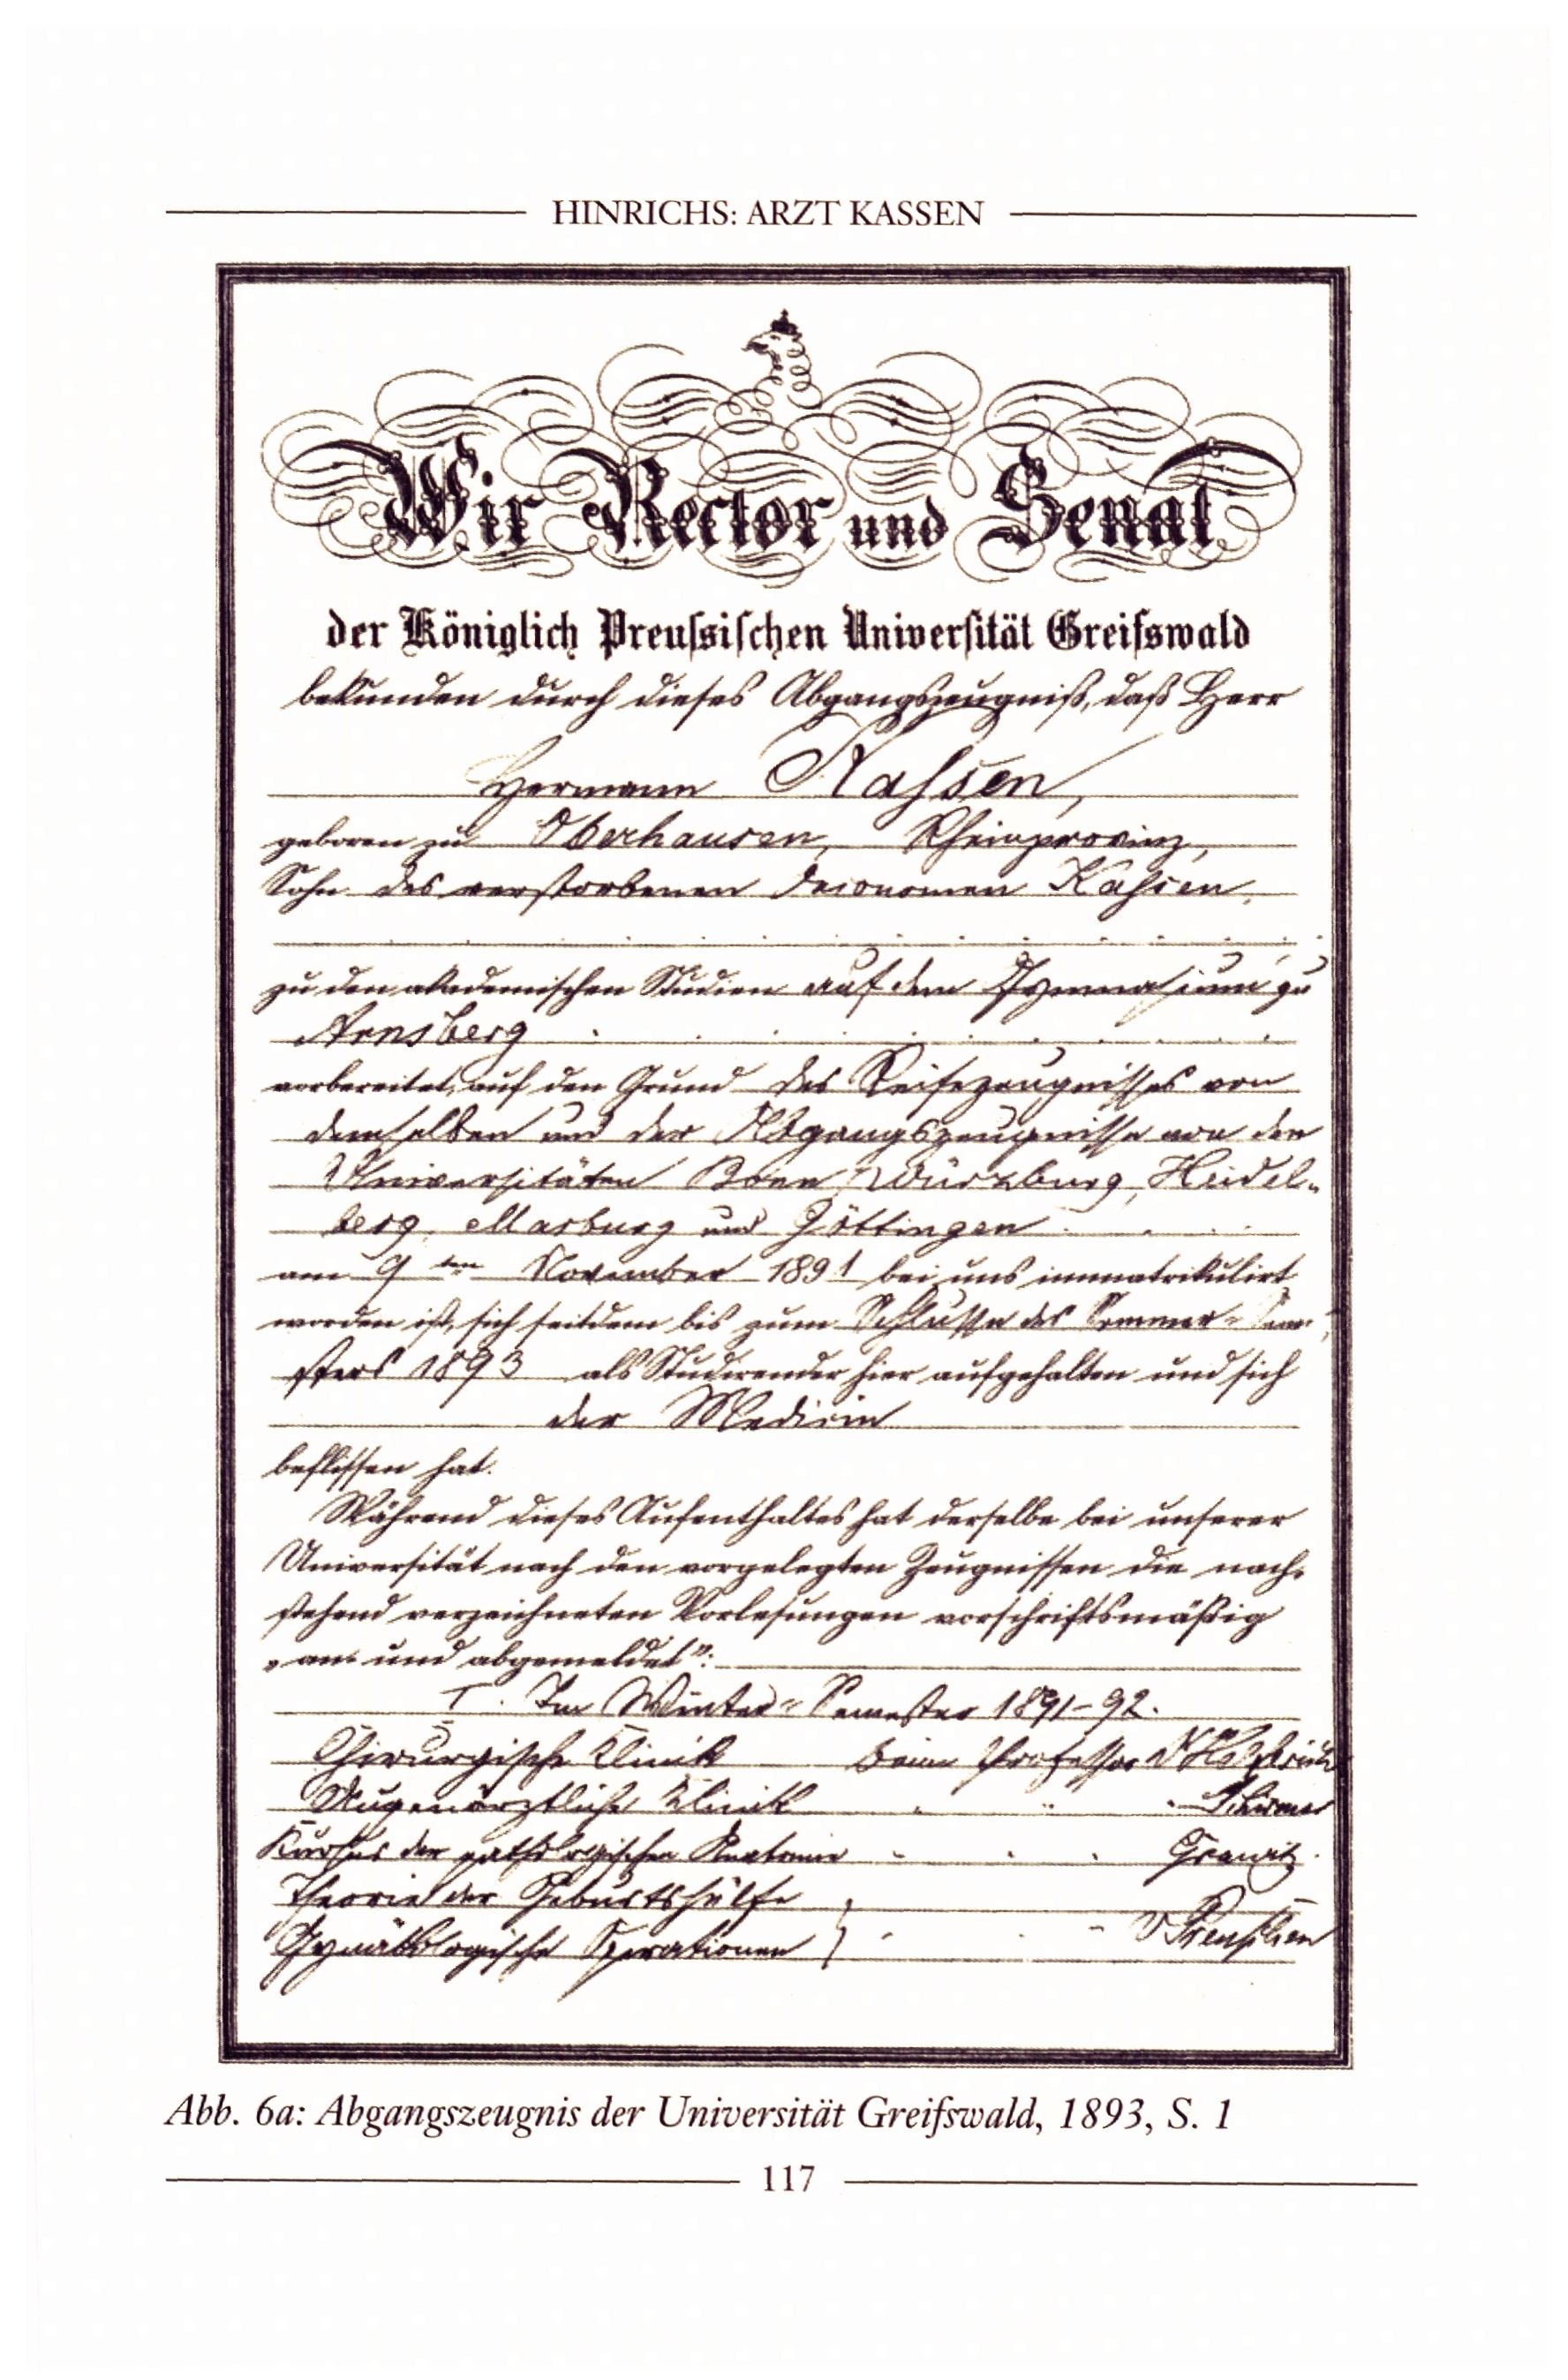 HINRICHS: ARZT KASSEN
Wir Rector und Senat
der Königlich Preusſsiſchen Univerſität Greifswald
bekunden durch dieses Abgangszeugniß, daß Herr
Hermann Kaſsen,
geboren zu Oberhausen, Rheinprovinz,
Sohn des verstorbenen Oeconomen Kaſsen,
zu den akademischen Studien auf dem Gymnasium zu
Arnsberg
vorbereitet, auf den Grund des Reifezeugnisses von
demselben und der Abgangszeugnisse von den
Universitäten Bonn, Würzburg, Heidel-
berg, Marburg und Göttingen
am 9ten November 1891 bei uns immatrikulirt
worden ist, sich seitdem bis zum Schlusse des Sommer-Seme-
sters 1893 als Studirender hier aufgehalten und sich
der Medicin
beflissen hat.
Während dieses Aufenthaltes hat derselbe bei unserer
Universität nach den vorgelegten Zeugnissen die nach-
stehend verzeichneten Vorlesungen vorschriftsmäßig
„an- und abgemeldet":
I. Im Winter-Semester 1891-92.
Chirurgische Klinik beim Professor Dr Helferich
Augenärztliche Klinik " " " Schirmer
Kursus der pathologischen Anatomie " " " Grawitz.
Theorie der Geburtshülfe
Gynäkologische Operationen } " " " v Preuſchen
Abb. 6a: Abgangszeugnis der Universität Greifswald, 1893, S. 1
117